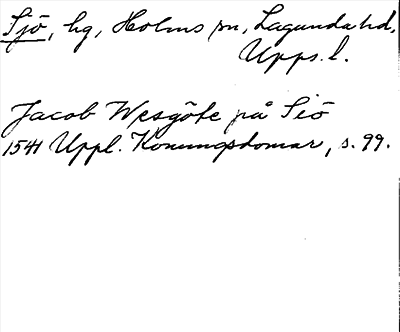 Sjö, hg, Holms sn, Lagunda hd,
Upps. l.
Jacob Wesgöte på Siö
1541 Uppl. Konungsdomar, s. 99.